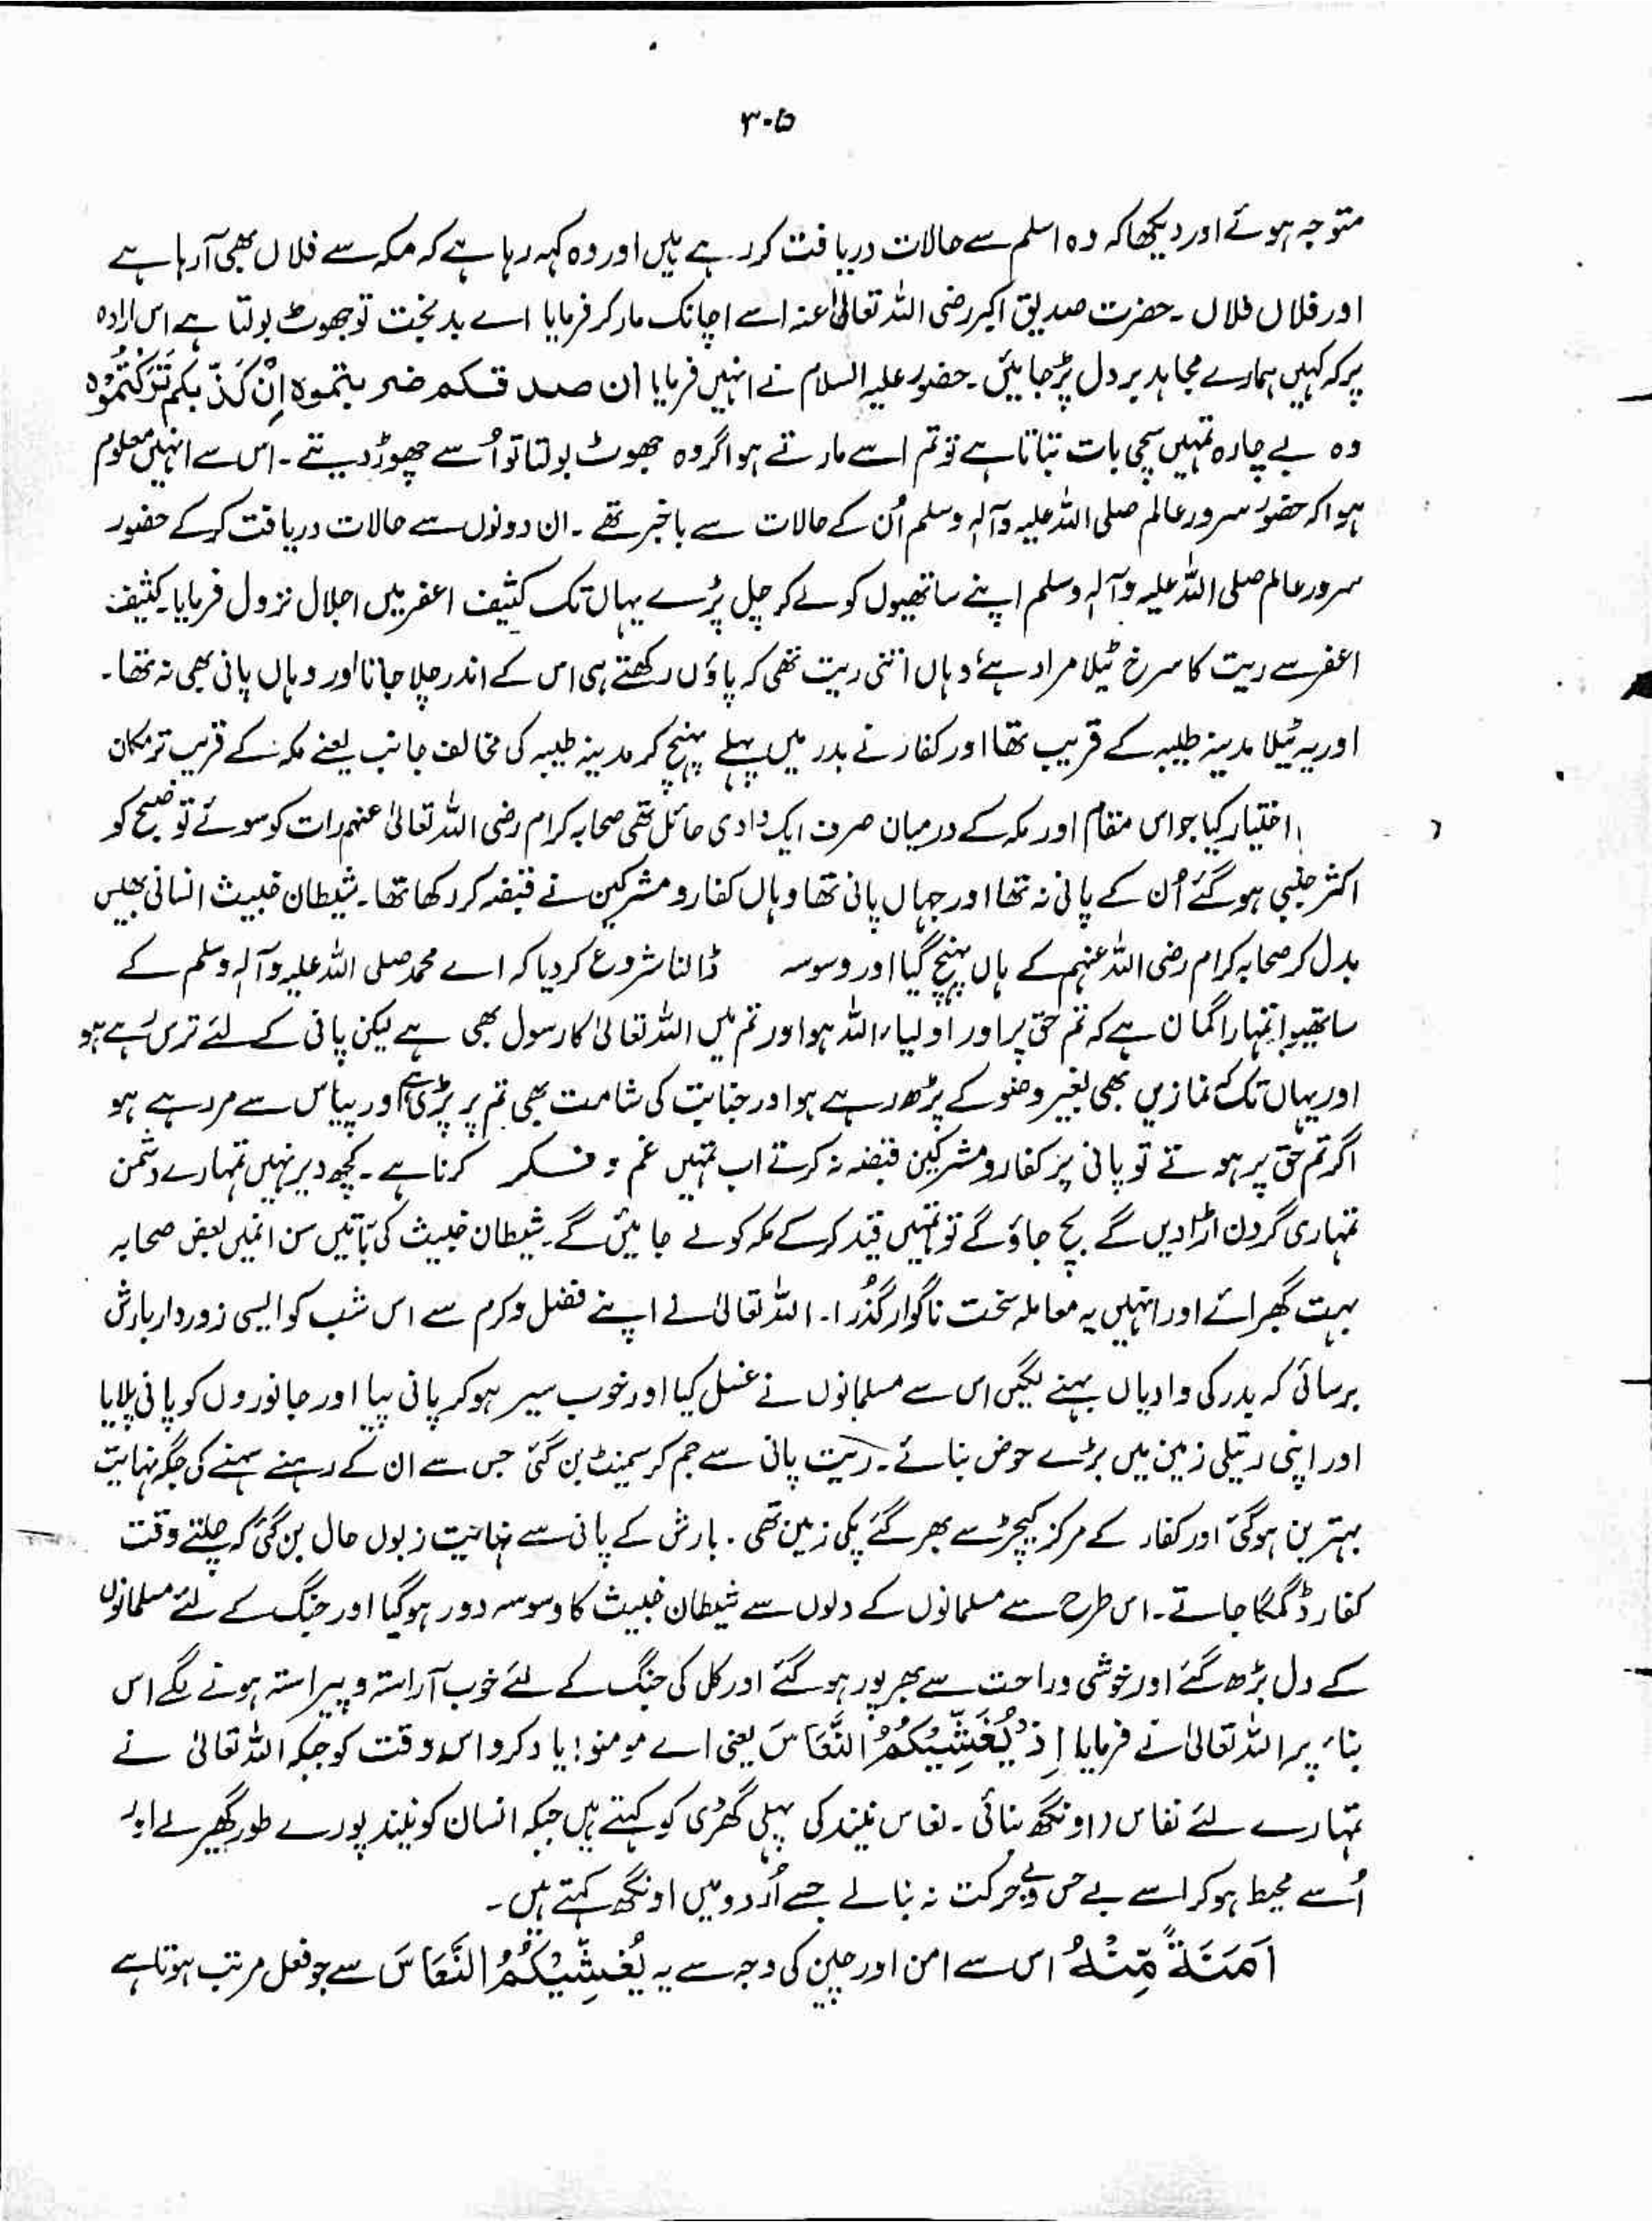 ۳۰۵
متوجہ ہوئے اور دیکھا کہ وہ اسلم سے حالات دریافت کر رہے ہیں اور وہ کہہ رہا ہے کہ مکہ سے فلاں بھی آ رہا ہے
اور فلاں فلاں ۔ حضرت صدیق اکبر رضی اللہ تعالیٰ عنہ اسے اچانک مار کر فرمایا اے بدبخت تو جھوٹ بولتا ہے اس ارادہ
پر کہ کہیں ہمارے مجاہد بر دل پڑ جائیں ۔ حضور علیہ السلام نے انہیں فرمایا ان صدقکم ضربتموہ اِنْ كَذَّبكم تَرَكْتُمُوْہ
وہ بے چارہ تمہیں سچی بات بتاتا ہے تو تم اسے مارتے ہو اگر وہ جھوٹ بولتا تو اُسے چھوڑ دیتے ۔ اس سے انہیں معلوم
ہوا کہ حضور سرور عالم صلی اللہ علیہ وآلہٖ وسلم اُن کے حالات سے باخبر تھے ۔ ان دونوں سے حالات دریافت کر کے حضور
سرور عالم صلی اللہ علیہ وآلہٖ وسلم اپنے ساتھیوں کو لے کر چل پڑے یہاں تک کثیف اعفر میں اجلال نزول فرمایا ۔ کثیف
اعفر سے ریت کا سرخ ٹیلا مراد ہے، وہاں اتنی ریت تھی کہ پاؤں رکھتے ہی اس کے اندر چلا جاتا اور وہاں پانی بھی نہ تھا ۔
اور یہ ٹیلا مدینہ طیبہ کے قریب تھا اور کفار نے بدر میں پہلے پہنچ کر مدینہ طیبہ کی مخالف جانب یعنے مکہ کے قریب تر مکان
اختیار کیا جو اس مقام اور مکہ کے درمیان صرف ایک وادی حائل تھی صحابہ کرام رضی اللہ تعالیٰ عنہم رات کو سوئے تو صبح کو
اکثر جنبی ہو گئے اُن کے پانی نہ تھا اور جہاں پانی تھا وہاں کفار و مشرکین نے قبضہ کر رکھا تھا ۔ شیطان خبیث انسانی بھیس
بدل کر صحابہ کرام رضی اللہ عنہم کے ہاں پہنچ گیا اور وسوسہ ڈالنا شروع کر دیا کہ اے محمد صلی اللہ علیہ وآلہٖ وسلم کے
ساتھیو! تمہارا گمان ہے کہ تم حق پر اور اولیاء اللہ ہو اور تم میں اللہ تعالیٰ کا رسول بھی ہے لیکن پانی کے لئے ترس رہے ہو
اور یہاں تک کہ نمازیں بھی بغیر وضو کے پڑھ رہے ہو اور جنابت کی شامت بھی تم پر پڑی ہے اور پیاس سے مر رہے ہو
اگر تم حق پر ہوتے تو پانی پر کفار و مشرکین قبضہ نہ کرتے اب تمہیں غم و فکر کرنا ہے ۔ کچھ دیر نہیں تمہارے دشمن
تمہاری گردن اڑا دیں گے بچ جاؤ گے تو تمہیں قید کر کے مکہ کو لے جائیں گے ۔ شیطان خبیث کی باتیں سن انہیں بعض صحابہ
بہت گھبرائے اور انہیں یہ معاملہ سخت ناگوار گذُرا ۔ اللہ تعالیٰ نے اپنے فضل و کرم سے اس شب کو ایسی زوردار بارش
برسائی کہ بدر کی وادیاں بہنے لگیں اس سے مسلمانوں نے غسل کیا اور خوب سیر ہو کر پانی پیا اور جانوروں کو پانی پلایا
اور اپنی ریتلی زمین میں بڑے حوض بنائے ۔ ریت پانی سے جم کر سیمنٹ بن گئی جس سے ان کے رہنے سہنے کی جگہ نہایت
بہترین ہو گئی اور کفار کے مرکز کیچڑ سے بھر گئے پکی زمین تھی ۔ بارش کے پانی سے نہایت زبوں حال بن گئی کہ چلتے وقت
کفار ڈگمگا جاتے ۔ اس طرح سے مسلمانوں کے دلوں سے شیطان خبیث کا وسوسہ دور ہو گیا اور جنگ کے لئے مسلمانوں
کے دل بڑھ گئے اور خوشی و راحت سے بھرپور ہو گئے اور کل کی جنگ کے لئے خوب آراستہ و پیراستہ ہونے لگے اس
بناء پر اللہ تعالیٰ نے فرمایا اِذْ يُغَشِّيْكُمُ النُّعَاسَ یعنی اے مومنو! یاد کرو اس وقت کو جبکہ اللہ تعالیٰ نے
تمہارے لئے نعاس (اونگھ بنائی ۔ نعاس نیند کی پہلی گھڑی کو کہتے ہیں جبکہ انسان کو نیند پورے طور گھیر لے اور
اُسے محیط ہو کر اسے بے حس و بے حرکت نہ بنا لے جسے اُردو میں اونگھ کہتے ہیں ۔
اَمَنَةً مِّنْهُ اس سے امن اور چین کی وجہ سے یہ يُغَشِّيْكُمُ النُّعَاسَ سے جو فعل مرتب ہوتا ہے